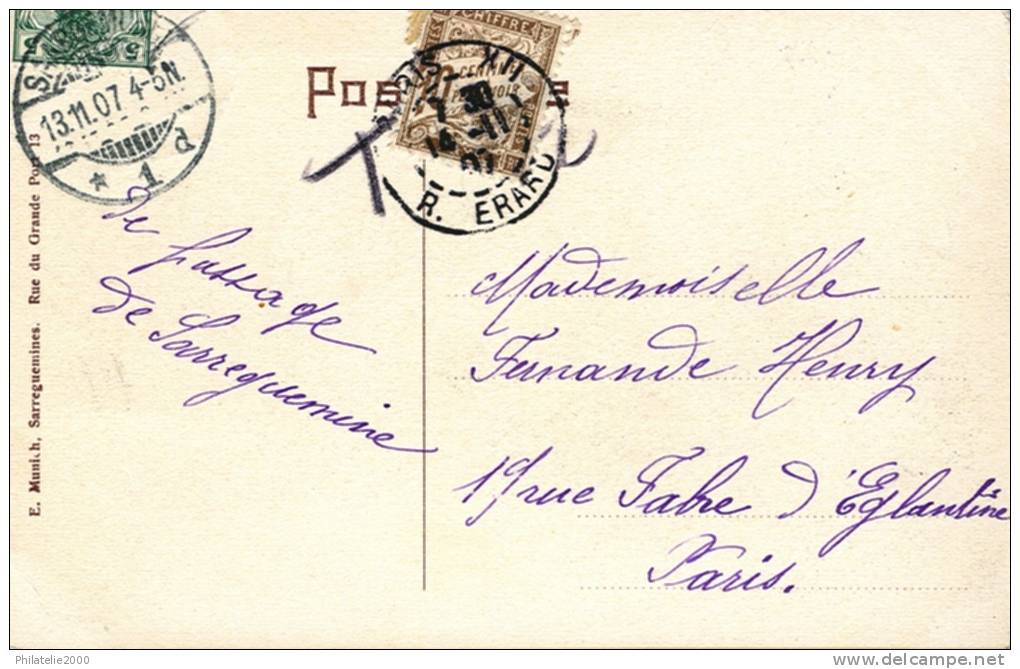 5 5
13.11.07 4-5N.
* 1 d
CHIFFRE
PARIS XII
7 30
14 -11
07
R. ERARD
E. Munich, Sarreguemines. Rue du Grande Pont 13
De passage
de Sarreguemine
Mademoiselle
Fernande Henry
19 rue Fabre d'Eglantine
Paris.
Philatelie2000
delcampe.net